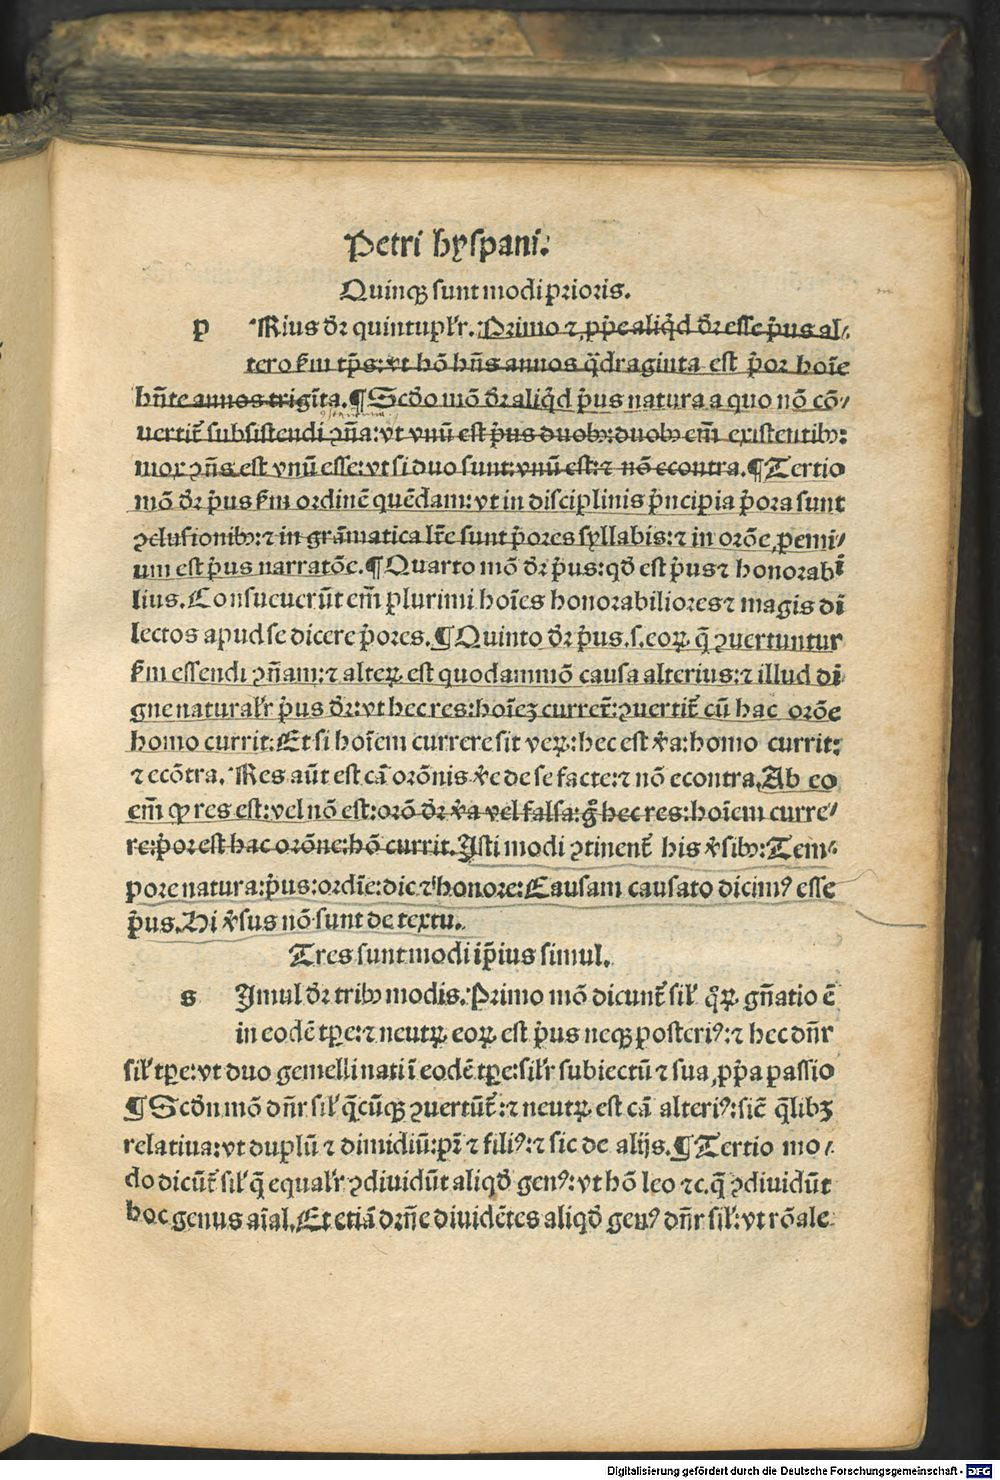 Petri hyspani.
Quinqꝫ sunt modi prioris.
p Rius dr̃ quintuplr̃. Primo ⁊ ꝓpͥe aliqͥd dr̃ esse pͥus al⸗
tero ẜm tp̃s: vt hõ hñs annos qͣdraginta est pͥor hoĩe
hñte annos trigĩta. ¶ Scd̃o mõ dr̃ aliqͥd pͥus natura a quo nõ cõ⸗
uertit̃ subsistendi ꝯña: vt vnũ est pͥus duobꝫ: duobꝫ em̃ existentibꝫ:
mox ꝯñs est vnũ esse: vt si duo sunt: vnũ est: ⁊ nõ econtra. ¶ Tertio
mõ dr̃ pͥus ẜm ordinẽ quẽdam: vt in disciplinis pͥncipia pͥora sunt
ꝯclusionibꝫ: ⁊ in grãmatica lr̃e sunt pͥores syllabis: ⁊ in orõe, ꝓemi⸗
um est pͥus narratõe. ¶ Quarto mõ dr̃ pͥus: qd̃ est pͥus ⁊ honorabi
lius. Consueuerũt em̃ plurimi hoĩes honorabiliores ⁊ magis di
lectos apud se dicere pͥores. ¶ Quinto dr̃ pͥus .s. eoꝝ q̃ ꝯuertuntur
ẜm essendi ꝯñam: ⁊ alteꝝ est quodammõ causa alterius: ⁊ illud di
gne naturalr̃ pͥus dr̃: vt hec res: hoĩeꝫ curret̃: ꝯuertit̃ cũ hac orõe
homo currit: Et si hoĩem currere sit veꝝ: hec est ṽa: homo currit:
⁊ ecõtra. Res aũt est cã orõnis ṽe de se facte: ⁊ nõ econtra. Ab eo
em̃ ꝙ res est: vel nõ est: orõ dr̃ ṽa vel falsa: gͦ hec res: hoĩem curre⸗
re: pͥor est hac orõne: hõ currit. Isti modi ꝯtinent̃ his ṽsibꝫ: Tem⸗
pore natura: pͥus: ordĩe: dic ⁊ honore: Causam causato dicimꝰ esse
pͥus. Hi ṽsus nõ sunt de textu.
Tres sunt modi ip̃ius simul.
s Imul dr̃ tribꝫ modis. Primo mõ dicunt̃ sil̃ qͦꝝ gñatio ẽ
in eodẽ tꝑe: ⁊ neutꝝ eoꝝ est pͥus neqꝫ posteriꝰ: ⁊ hec dñr
sil̃ tꝑe: vt duo gemelli nati ĩ eodẽ tꝑe: silr̃ subiectũ ⁊ sua ꝓpͥa passio
¶ Scd̃o mõ dñr sil̃ q̃cũqꝫ ꝯuertũt̃: ⁊ neutꝝ est cã alteriꝰ: sic̃ q̃libꝫ
relatiua: vt duplũ ⁊ dimidiũ: pr̃ ⁊ filiꝰ: ⁊ sic de alijs. ¶ Tertio mo⸗
do dicũt̃ sil̃ q̃ equalr̃ ꝯdiuidũt aliqd̃ genꝰ: vt hõ leo ⁊c. q̃ ꝯdiuidũt
hoc genus aĩal. Et etiã dr̃ñe diuidẽtes aliqd̃ genꝰ dñr sil̃: vt rõale
Digitalisierung gefördert durch die Deutsche Forschungsgemeinschaft - DFG